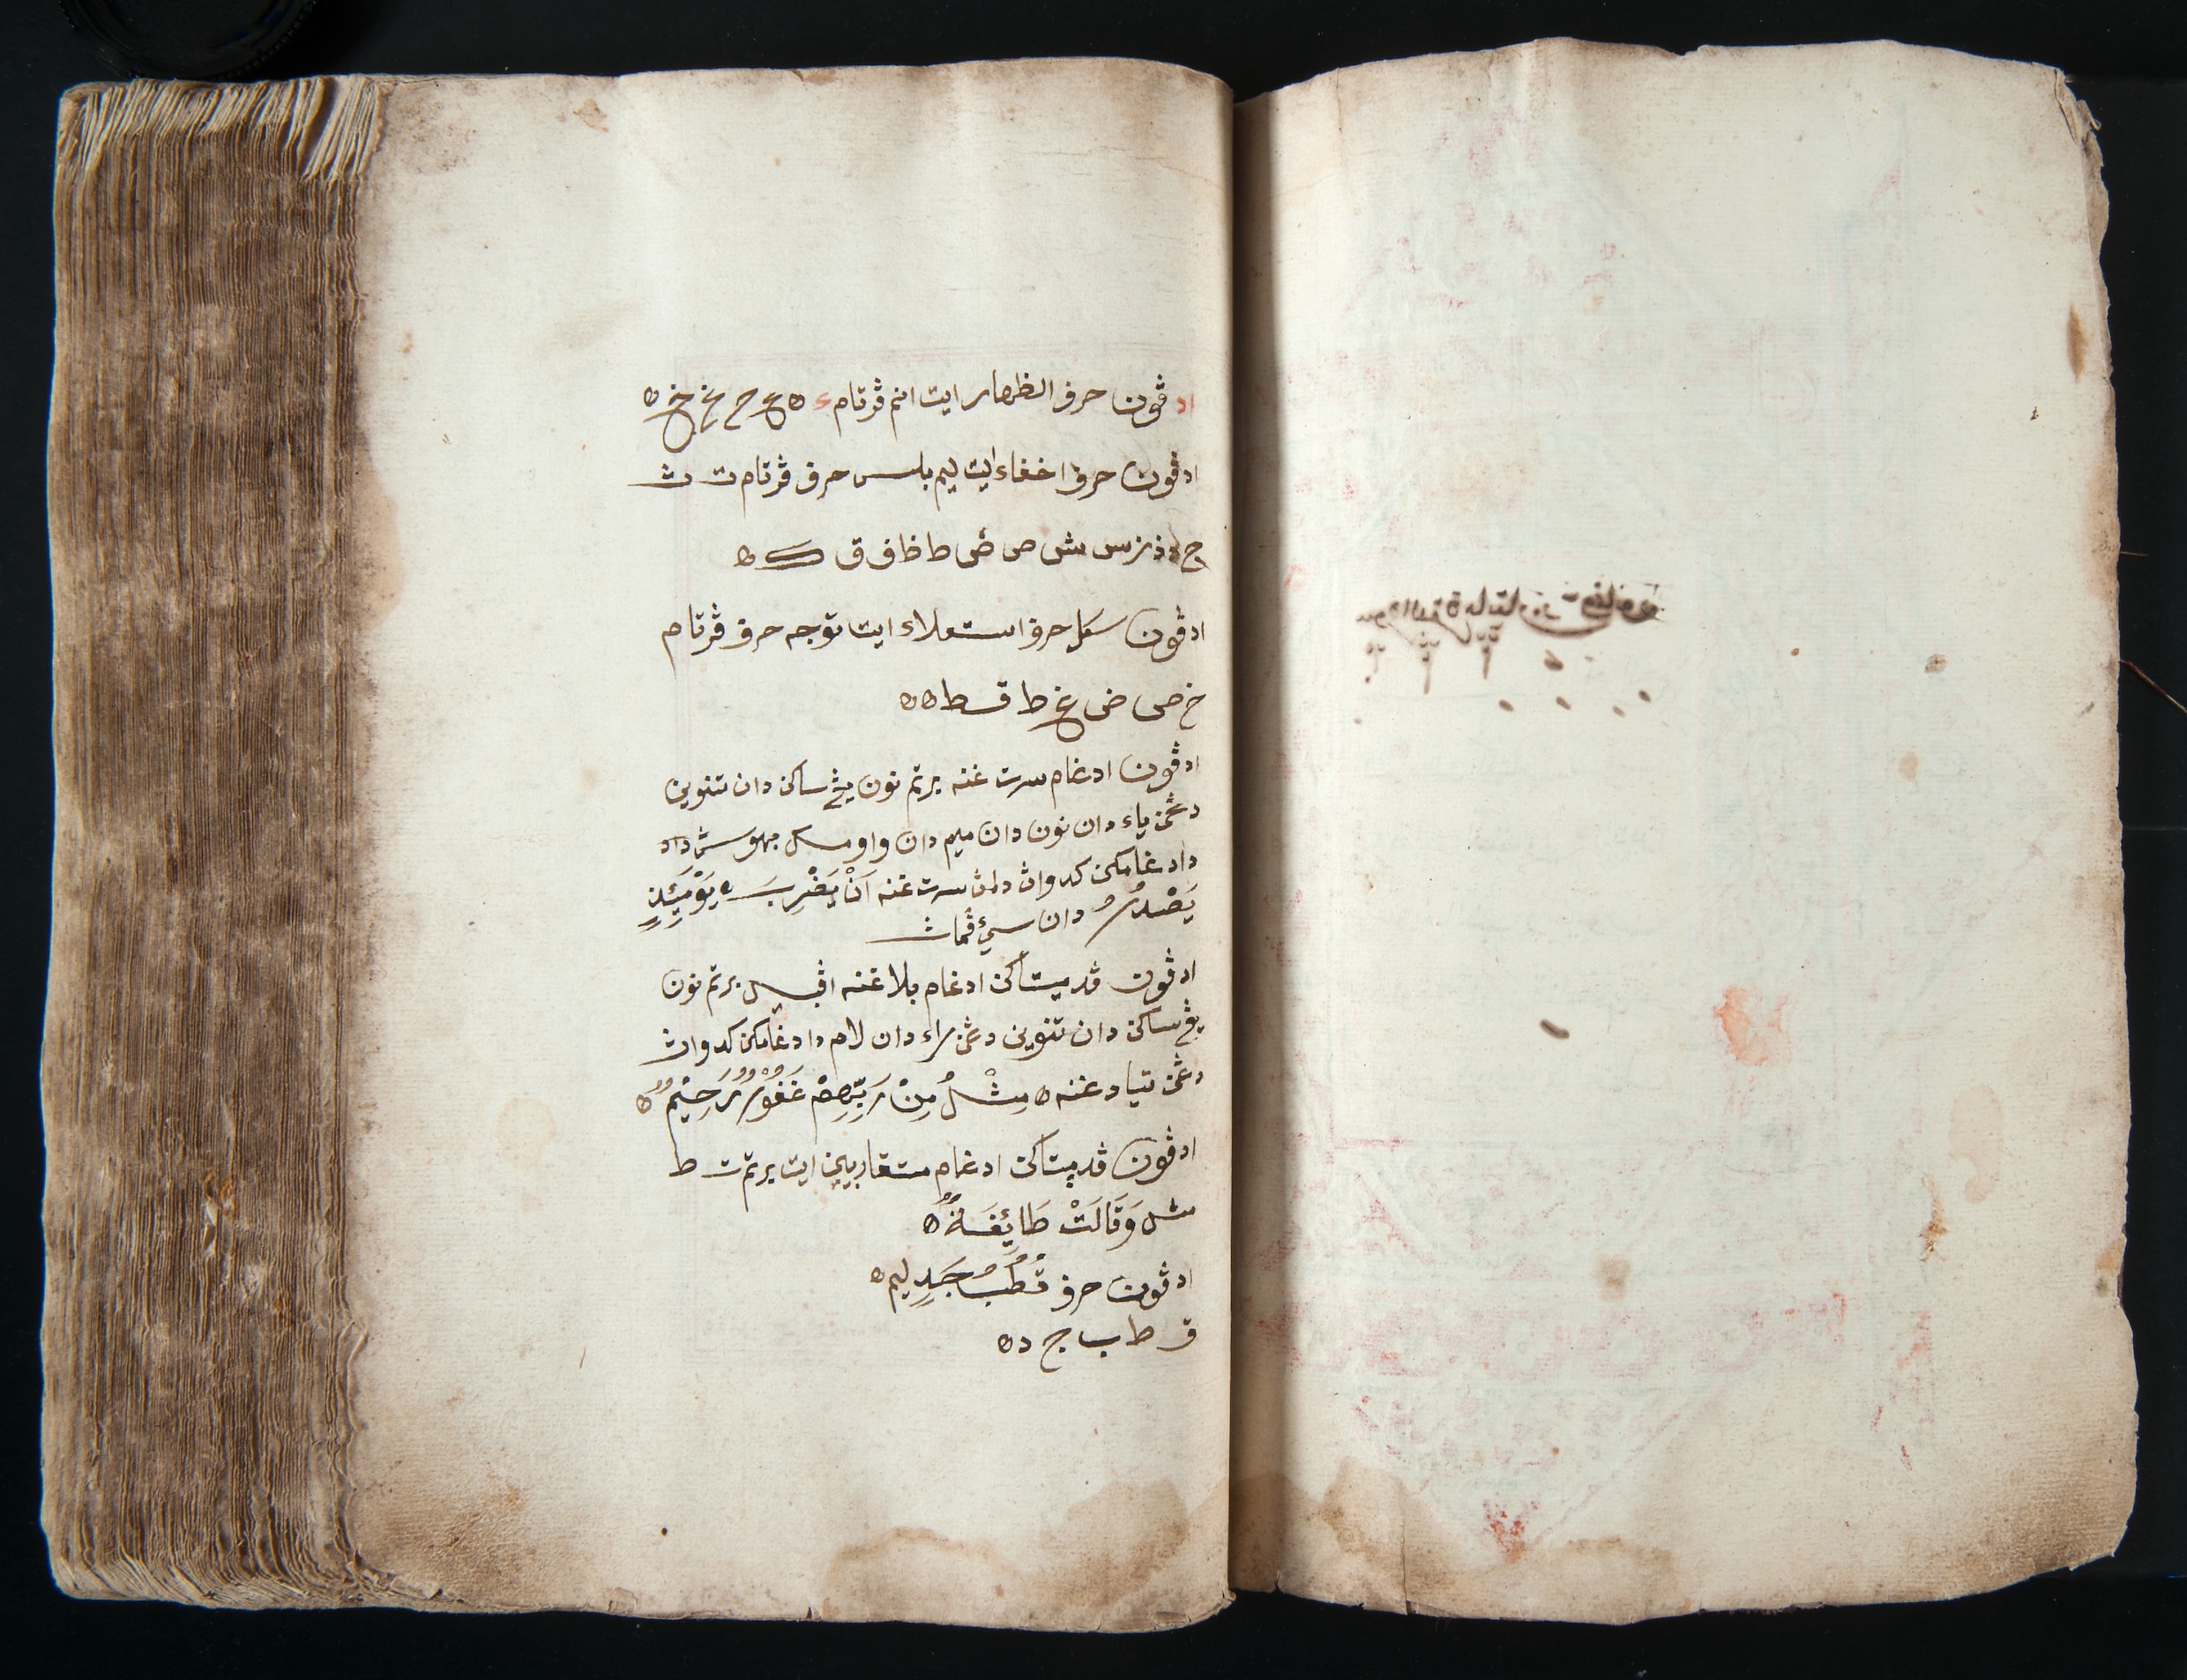 ادڤون حرف الظهار ايت انم ڤرتام ء ه ع ح غ خ ه
ادڤون حرف اخفاء ايت ليم بلس حرف ڤرتام ت ث
ج د ذ ز س ش ص ض ط ظ ف ق ك ه
ادڤون سكل حرف استعلاء ايت توجه حرف ڤرتام
خ ص ض غ ط ق ظ ه ه
ادڤون ادغام سرت غنه برتم نون يڠ ساكن دان تنوين
دڠن ياء دان نون دان ميم دان واو
دادغامكن كدوان سرت غنه اَنْ يَضْرِبَ ه يَوْمَئِذٍ
يَصْدُرُ دان
ادڤون ڤد ميتاكن ادغام بلا غنه اڤبيل برتم نون
يڠ ساكن دان تنوين دڠن راء دان لام دادغامكن كدوان
دڠن تياد غنه ه مِثْلُ مِنْ رَبِّهِمْ غَفُوْرٌ رَحِيْمٌ ه
ادڤون ڤد ميتاكن ادغام متقاربين ايت برتم ت ط
مثل وَقَالَتْ طَائِفَةٌ ه
ادڤون حرف قُطُبُ جَدٍ ليم ه
ق ط ب ج د ه